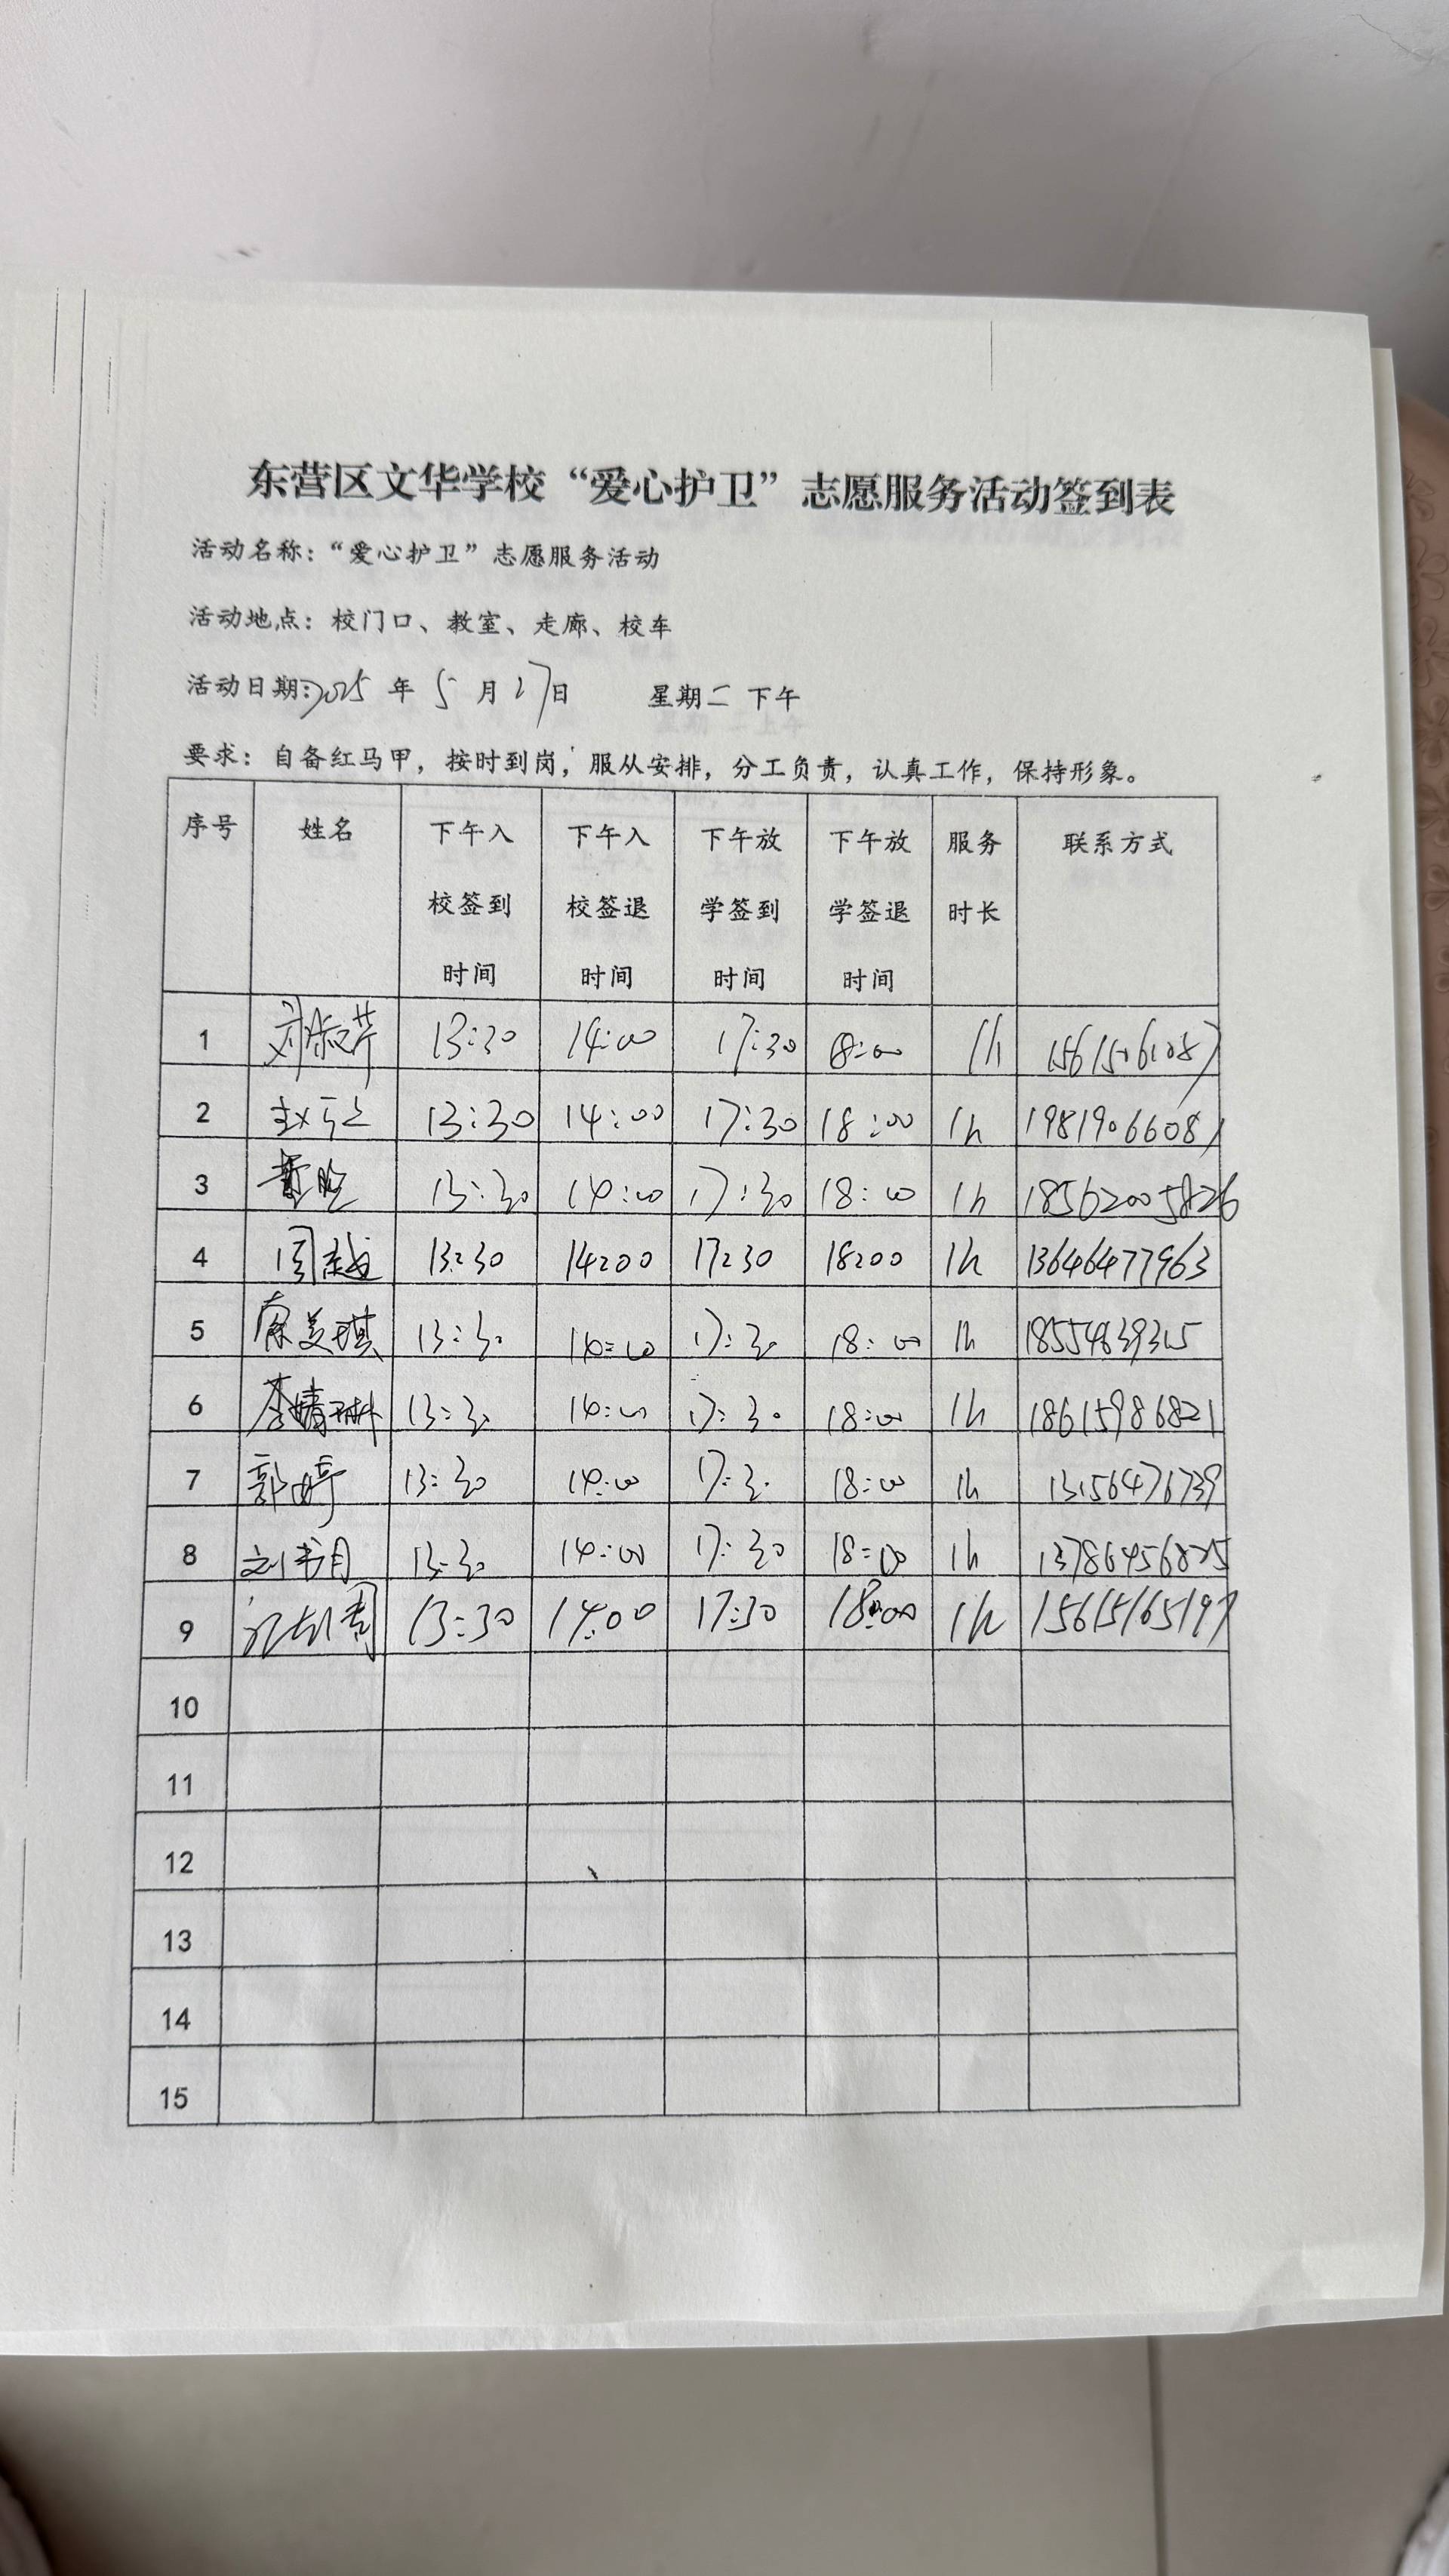 东营区文华学校“爱心护卫”志愿服务活动签到表
活动名称：“爱心护卫”志愿服务活动
活动地点：校门口、教室、走廊、校车
活动日期：2025年5月27日 星期二 下午
要求：自备红马甲，按时到岗，服从安排，分工负责，认真工作，保持形象。
序号 姓名 下午入校签到时间 下午入校签退时间 下午放学签到时间 下午放学签退时间 服务时长 联系方式
1 刘淑芹 13:30 14:00 17:30 18:00 1h 15615061087
2 13:30 14:00 17:30 18:00 1h 19819066081
3 13:30 14:00 17:30 18:00 1h 18562005826
4 周越 13:30 14:00 17:30 18:00 1h 13646477963
5 13:30 14:00 17:30 18:00 1h 18554639315
6 李婧琳 13:30 14:00 17:30 18:00 1h 18615986821
7 郭婷 13:30 14:00 17:30 18:00 1h 13156476739
8 刘书月 13:30 14:00 17:30 18:00 1h 13786456825
9 13:30 14:00 17:30 18:00 1h 15615165197
10
11
12
13
14
15